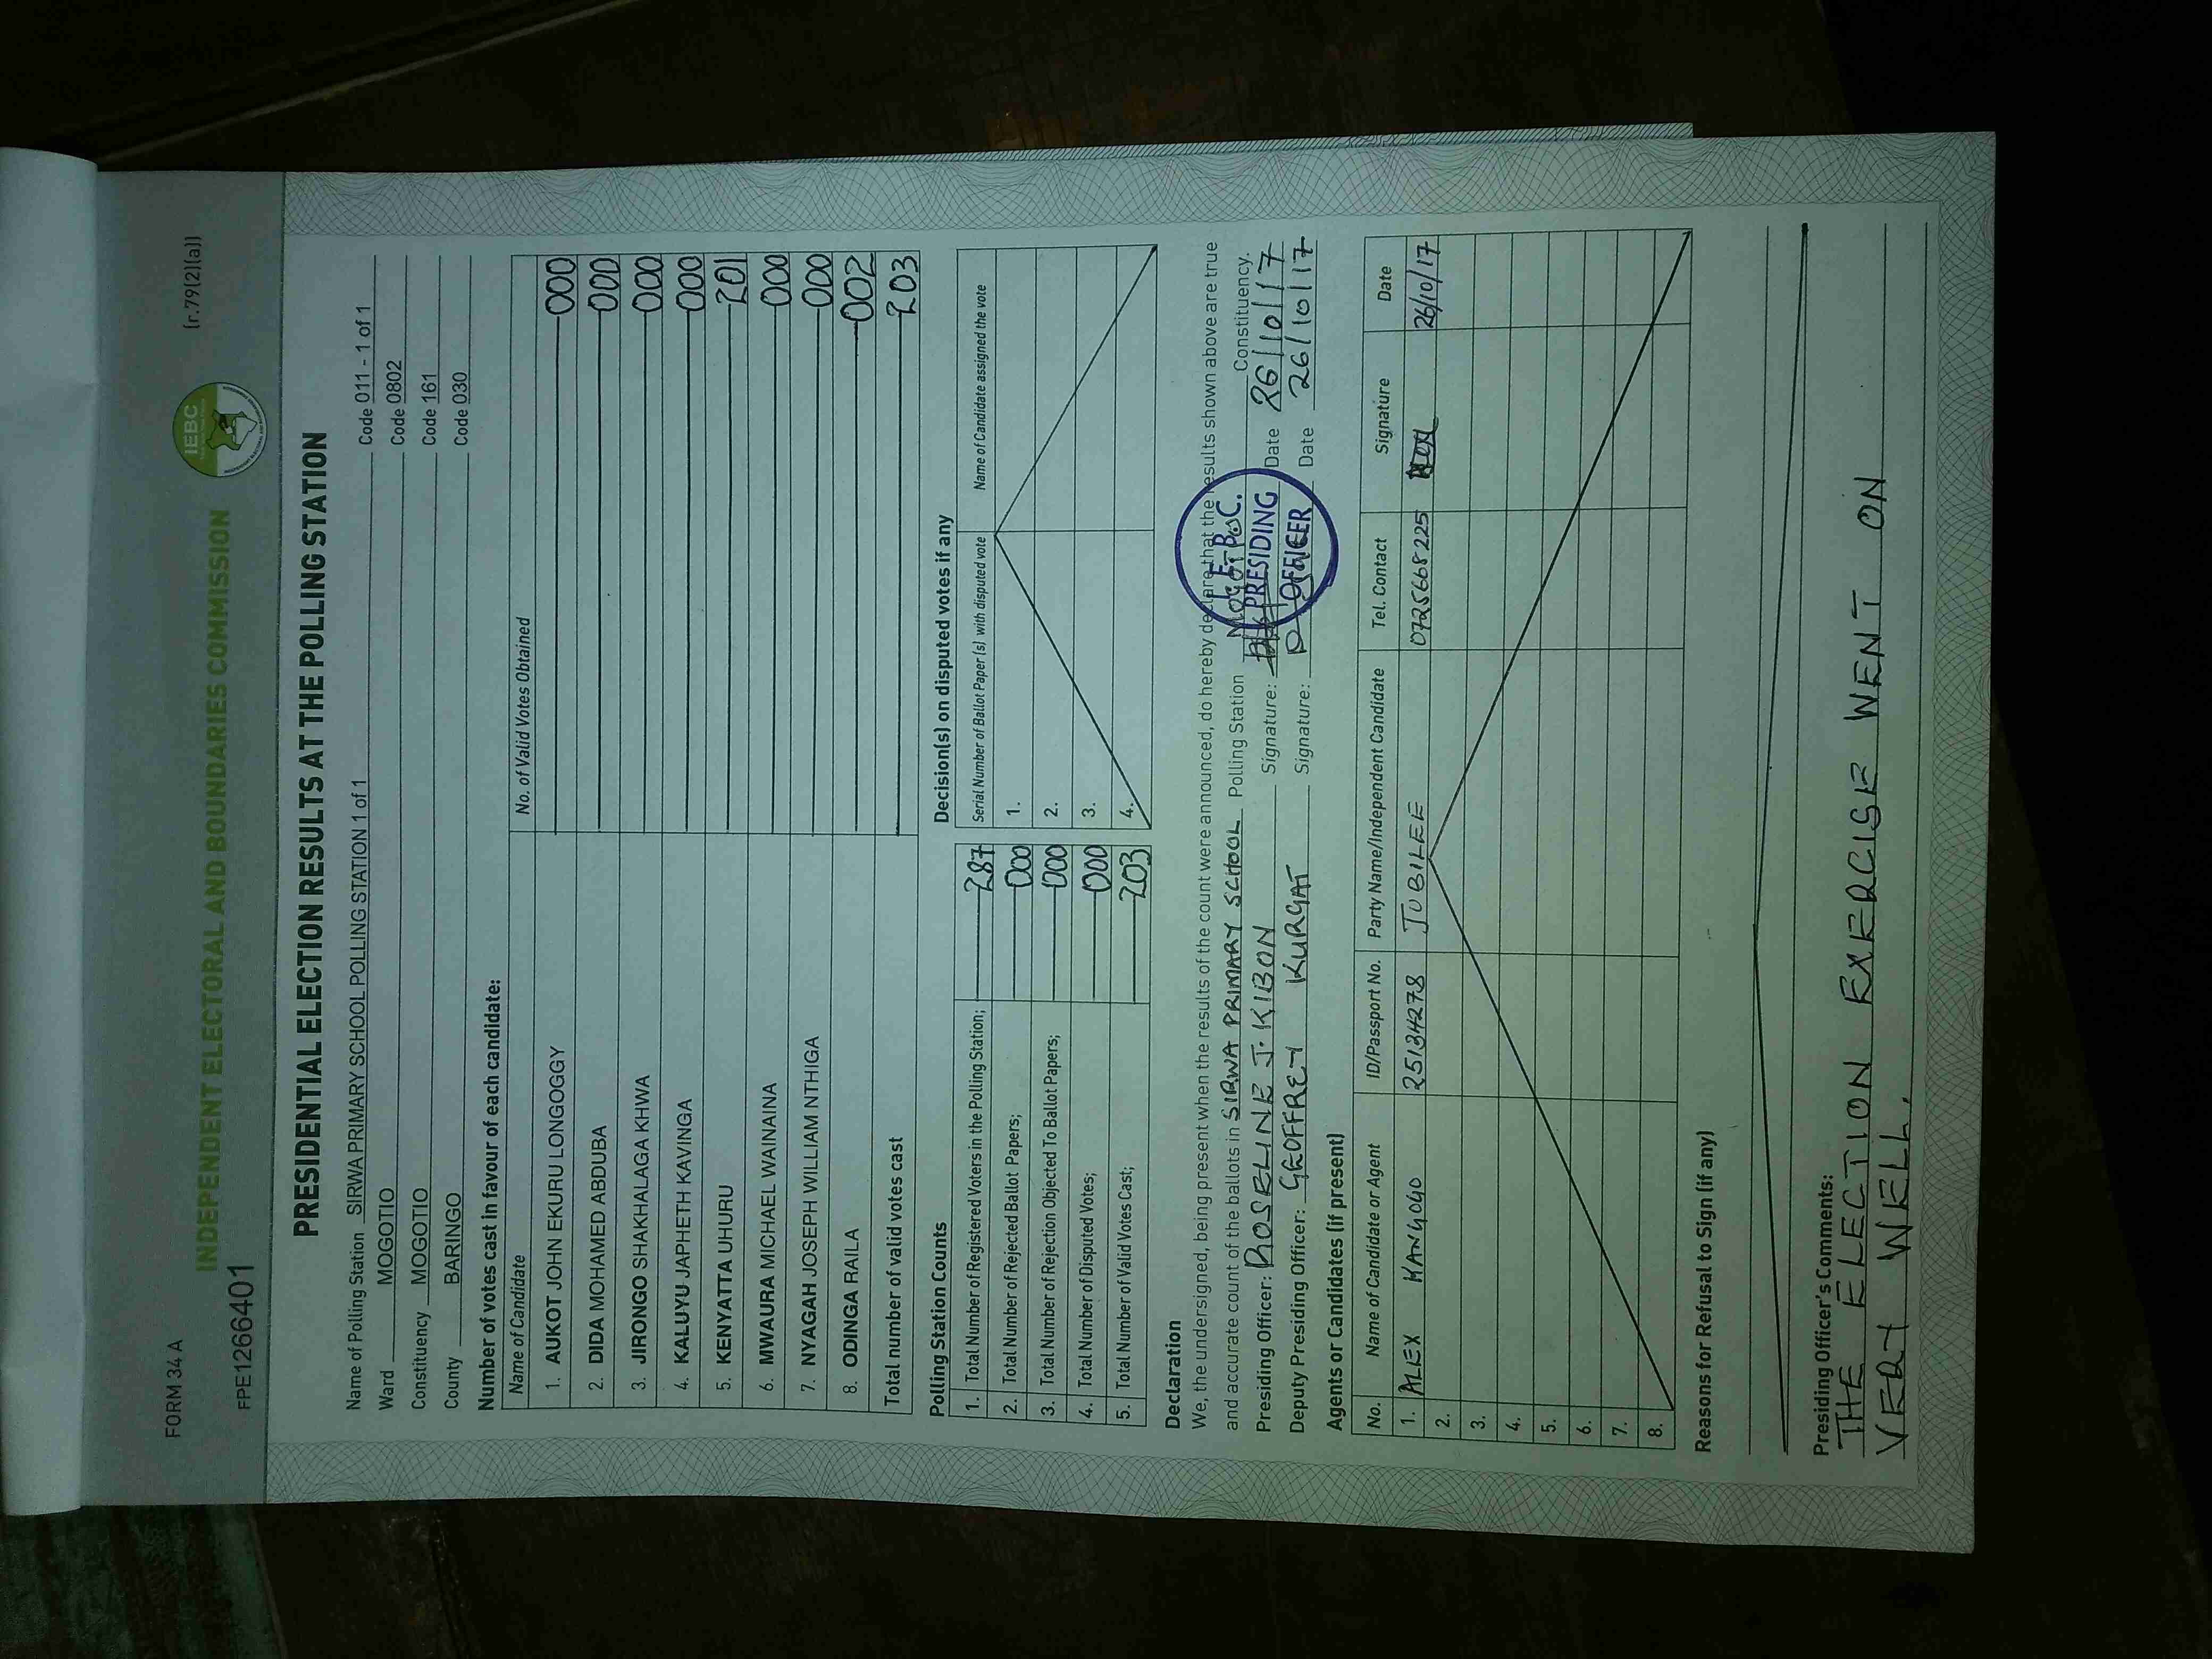 FORM 34 A
(r.79(2)(a))
FPE1266401
INDEPENDENT ELECTORAL AND BOUNDARIES COMMISSION
IEBC
PRESIDENTIAL ELECTION RESULTS AT THE POLLING STATION
Name of Polling Station SIRWA PRIMARY SCHOOL POLLING STATION 1 of 1 Code 011 - 1 of 1
Ward MOGOTIO Code 0802
Constituency MOGOTIO Code 161
County BARINGO Code 030
Number of votes cast in favour of each candidate:
Name of Candidate No. of Valid Votes Obtained
1. AUKOT JOHN EKURU LONGOGGY 000
2. DIDA MOHAMED ABDUBA 000
3. JIRONGO SHAKHALAGA KHWA 000
4. KALUYU JAPHETH KAVINGA 000
5. KENYATTA UHURU 201
6. MWAURA MICHAEL WAINAINA 000
7. NYAGAH JOSEPH WILLIAM NTHIGA 000
8. ODINGA RAILA 002
Total number of valid votes cast 203
Polling Station Counts
1. Total Number of Registered Voters in the Polling Station; 287
2. Total Number of Rejected Ballot Papers; 000
3. Total Number of Rejection Objected To Ballot Papers; 000
4. Total Number of Disputed Votes; 000
5. Total Number of Valid Votes Cast; 203
Decision(s) on disputed votes if any
Serial Number of Ballot Paper (s) with disputed vote Name of Candidate assigned the vote
1.
2.
3.
4.
Declaration
We, the undersigned, being present when the results of the count were announced, do hereby declare that the results shown above are true
and accurate count of the ballots in SIRWA PRIMARY SCHOOL Polling Station MOGOTIO Constituency.
Presiding Officer: ROSELINE J. KIBON Signature: Date 26/10/17
Deputy Presiding Officer: GEOFFREY KURGAT Signature: Date 26/10/17
I.E.B.C.
PRESIDING
OFFICER
Agents or Candidates (if present)
No. Name of Candidate or Agent ID/Passport No. Party Name/Independent Candidate Tel. Contact Signature Date
1. ALEX KANGOGO 25134278 JUBILEE 0725668225 26/10/17
2.
3.
4.
5.
6.
7.
8.
Reasons for Refusal to Sign (if any)
Presiding Officer's Comments:
THE ELECTION EXERCISE WENT ON
VERY WELL.